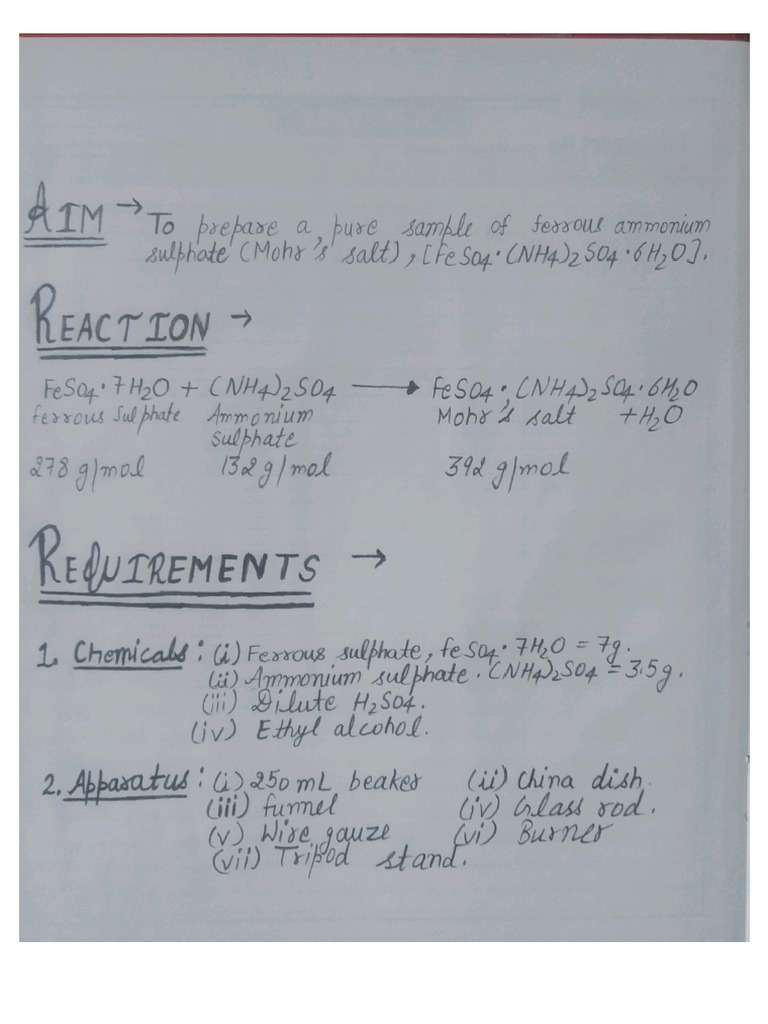 AIM → To prepare a pure sample of ferrous ammonium
sulphate (Mohr's salt), [FeSO4·(NH4)2SO4·6H2O].
REACTION →
FeSO4·7H2O + (NH4)2SO4 ⟶ FeSO4·(NH4)2SO4·6H2O
Ferrous Sulphate Ammonium Mohr's salt +H2O
Sulphate
278 g/mol 132 g/mol 392 g/mol
REQUIREMENTS →
1. Chemicals: (i) Ferrous sulphate, feSO4·7H2O = 7g.
(ii) Ammonium sulphate. (NH4)2SO4 = 3.5g.
(iii) Dilute H2SO4.
(iv) Ethyl alcohol.
2. Apparatus: (i) 250 mL beaker (ii) China dish.
(iii) funnel (iv) Glass rod.
(v) Wire gauze (vi) Burner
(vii) Tripod stand.